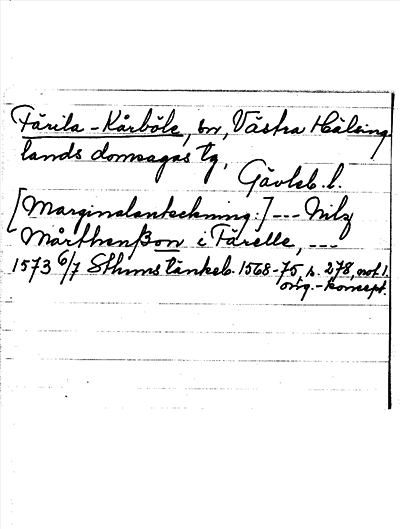 Färila-Kårböle, sn, Västra Hälsing-
lands domsagas tg,
Gävleb. l.
[Marginalanteckning:] --- Nilz
Mårthenßon i Färelle, ---
1573 6/7 Sthms tänkeb. 1568-75, s. 278, not 1.
orig.-koncept.